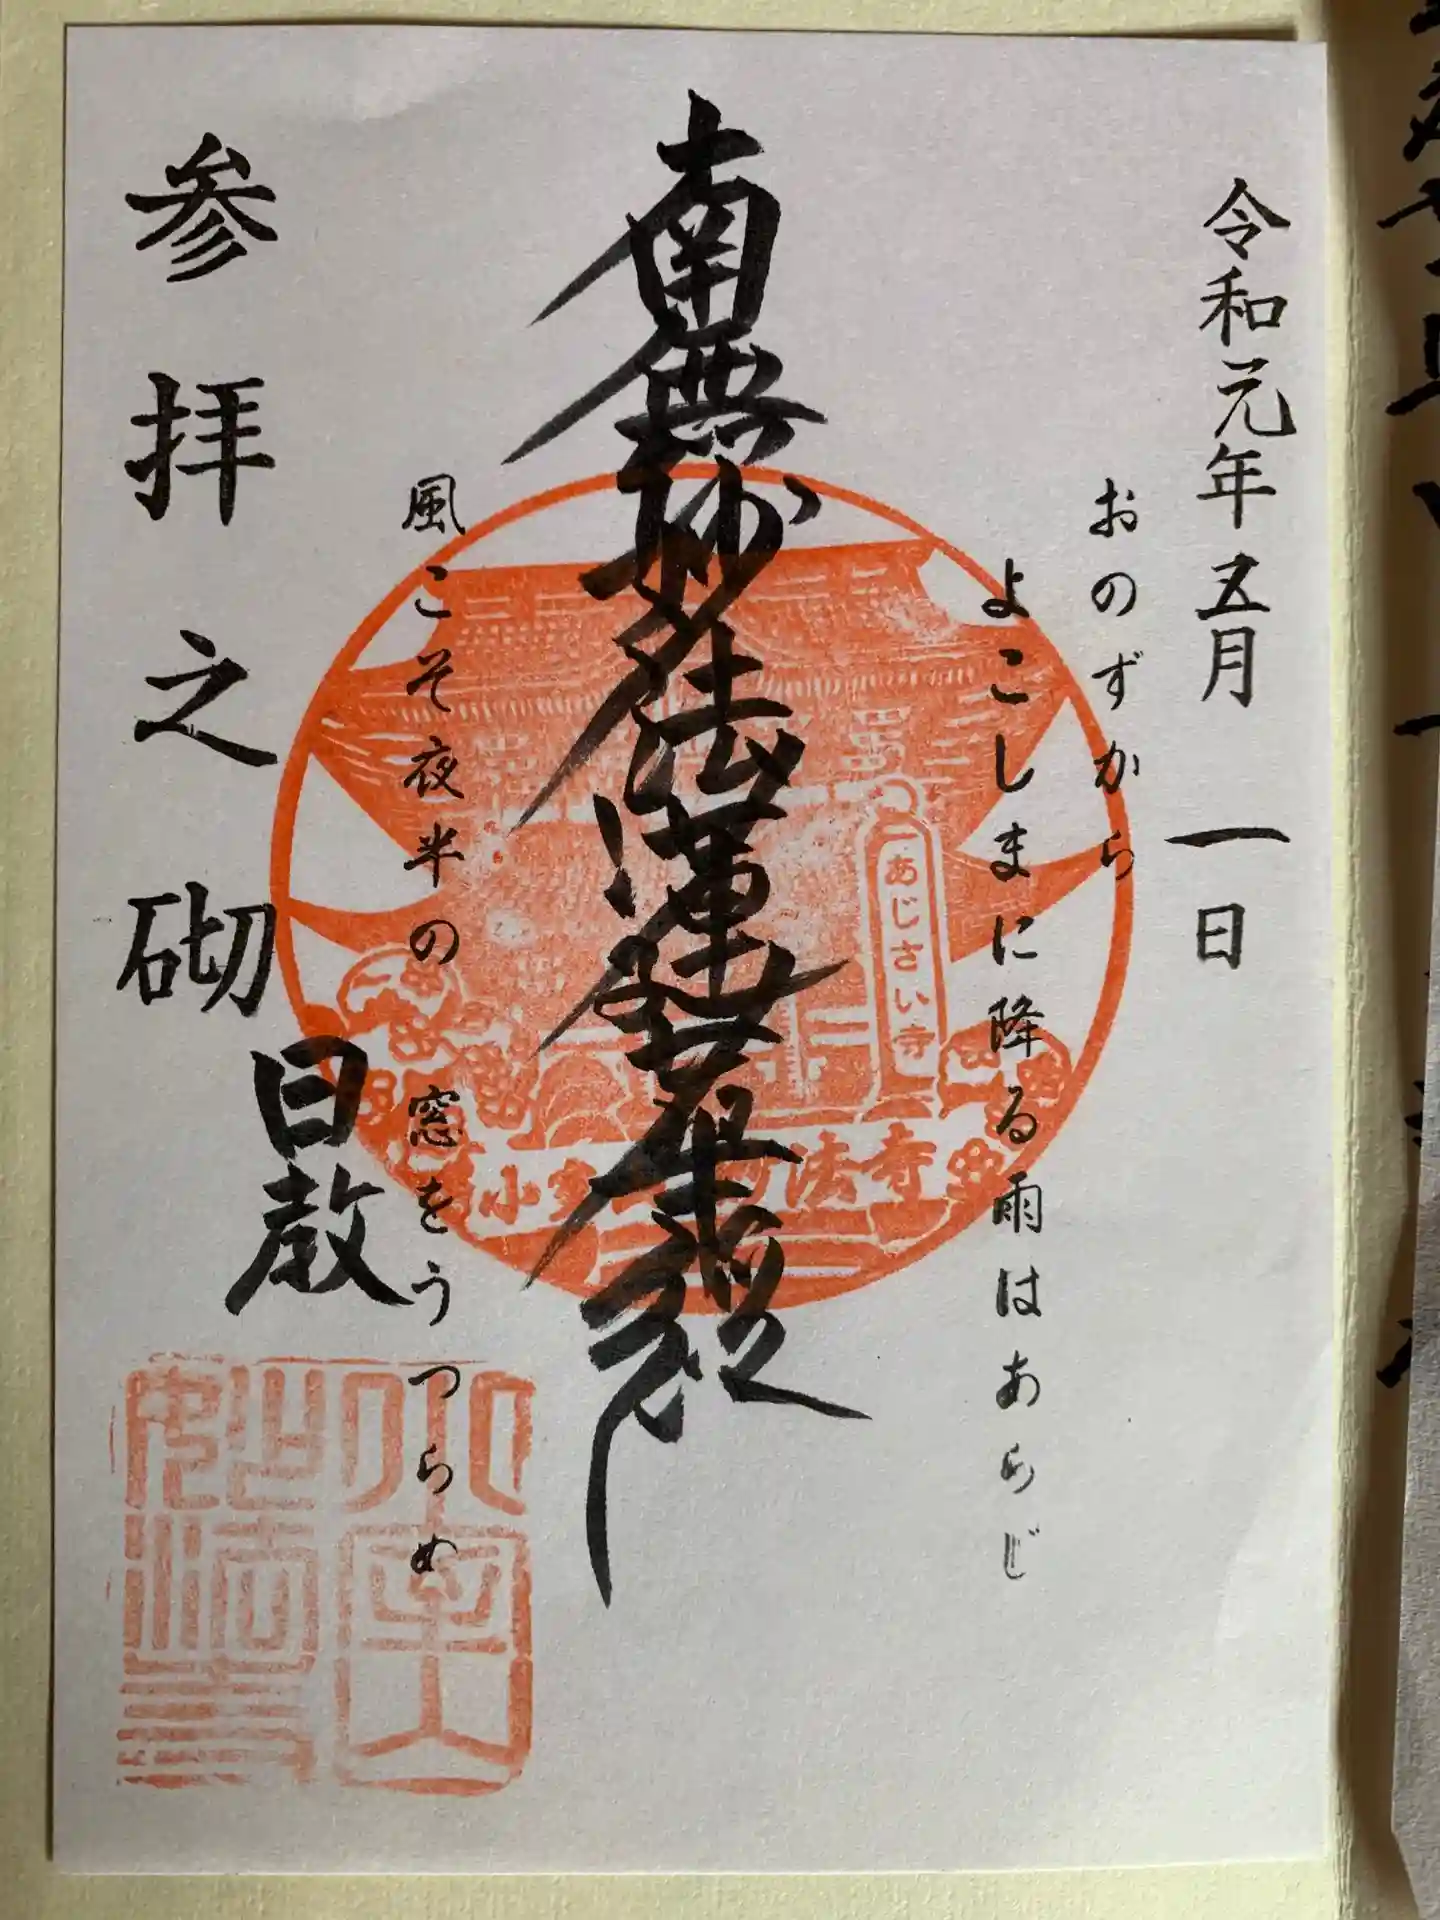 令和元年五月一日
おのずから
よこしまに降る雨はあらじ
南無妙法蓮華経
あじさい寺
小室山妙法寺
風こそ夜半の窓をうつらめ
参拝之砌
日教
小室山
妙法寺